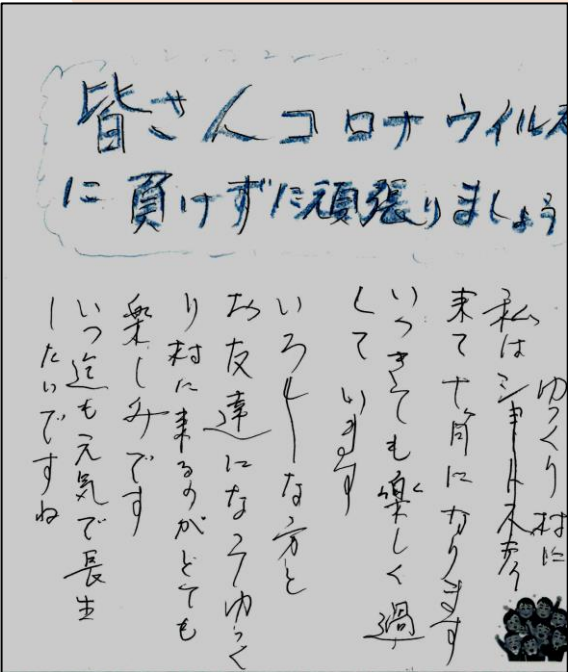 皆さんコロナウイルス
に負けずに頑張りましょう
ゆっくり村に
私はショートス
来て十ヶ月になります
いつきても楽しく過
して います
いろ〳〵な方と
お友達になってゆっく
り村に来るのがとても
楽しみです
いつ迄も元気で長生
したいですね